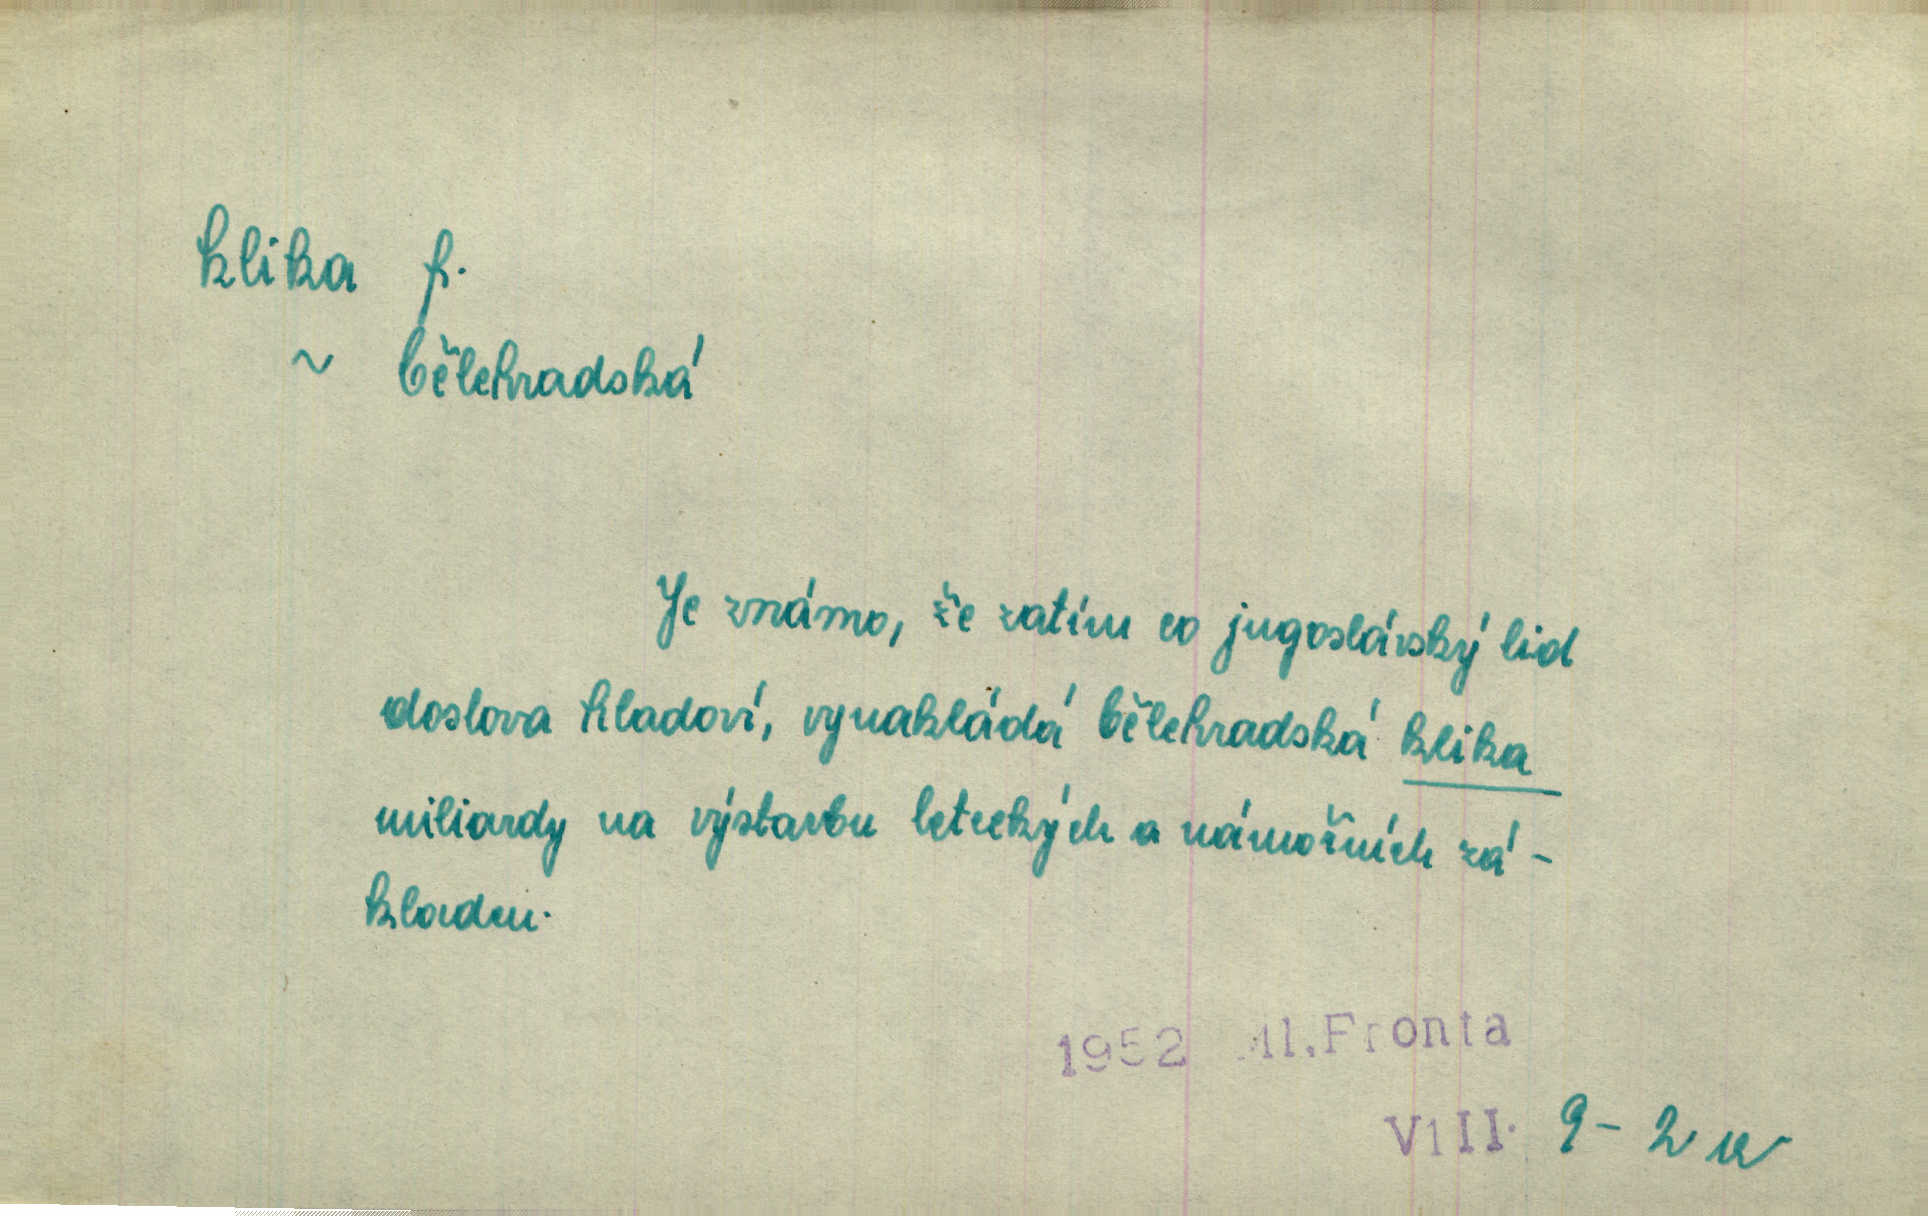 klika f.
~ bělehradská
Je známo, že zatím co jugoslávský lid
doslova hladoví, vynakládá bělehradská klika
miliardy na výstavbu leteckých a námořních zá-
kladen.
1952 Ml.Fronta
VIII. 9 - 2